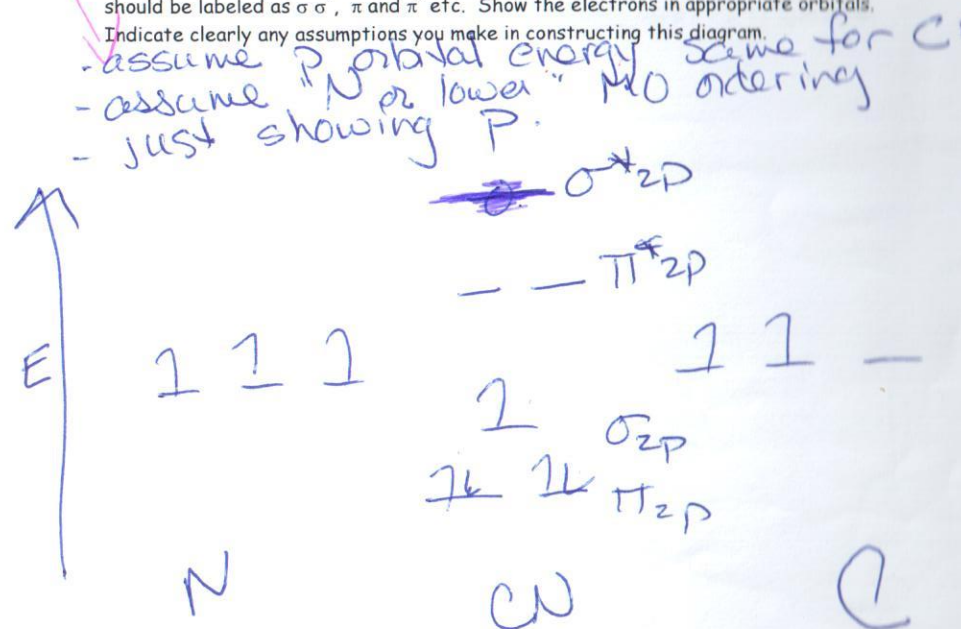 should be labeled as σ σ , π and π etc. Show the electrons in appropriate orbitals.
Indicate clearly any assumptions you make in constructing this diagram.
- assume P orbital energy same for C
- assume "N or lower" MO ordering
- just showing P.
σ*2p
π*2p
E
1 1 1
1 1 _
1
σ2p
1L 1L π2p
N
CN
C